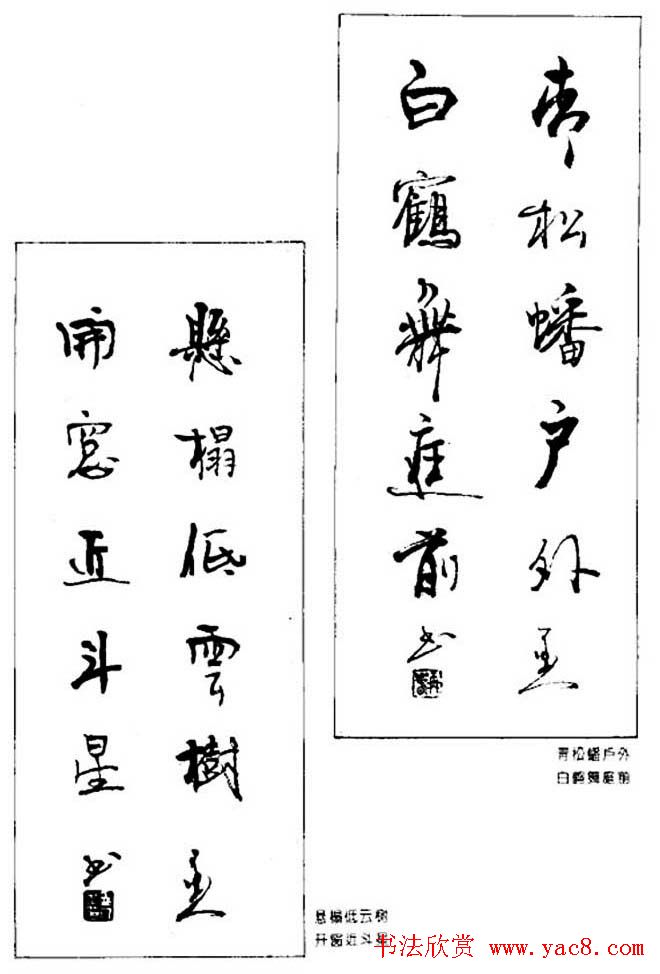 青松蟠户外
白鶴舞庭前
书
青松蟠戶外
白鹤舞庭前
懸榻低雲樹
開窓近斗星
书
悬榻低云树
开窗近斗星
书法欣赏 www.yac8.com